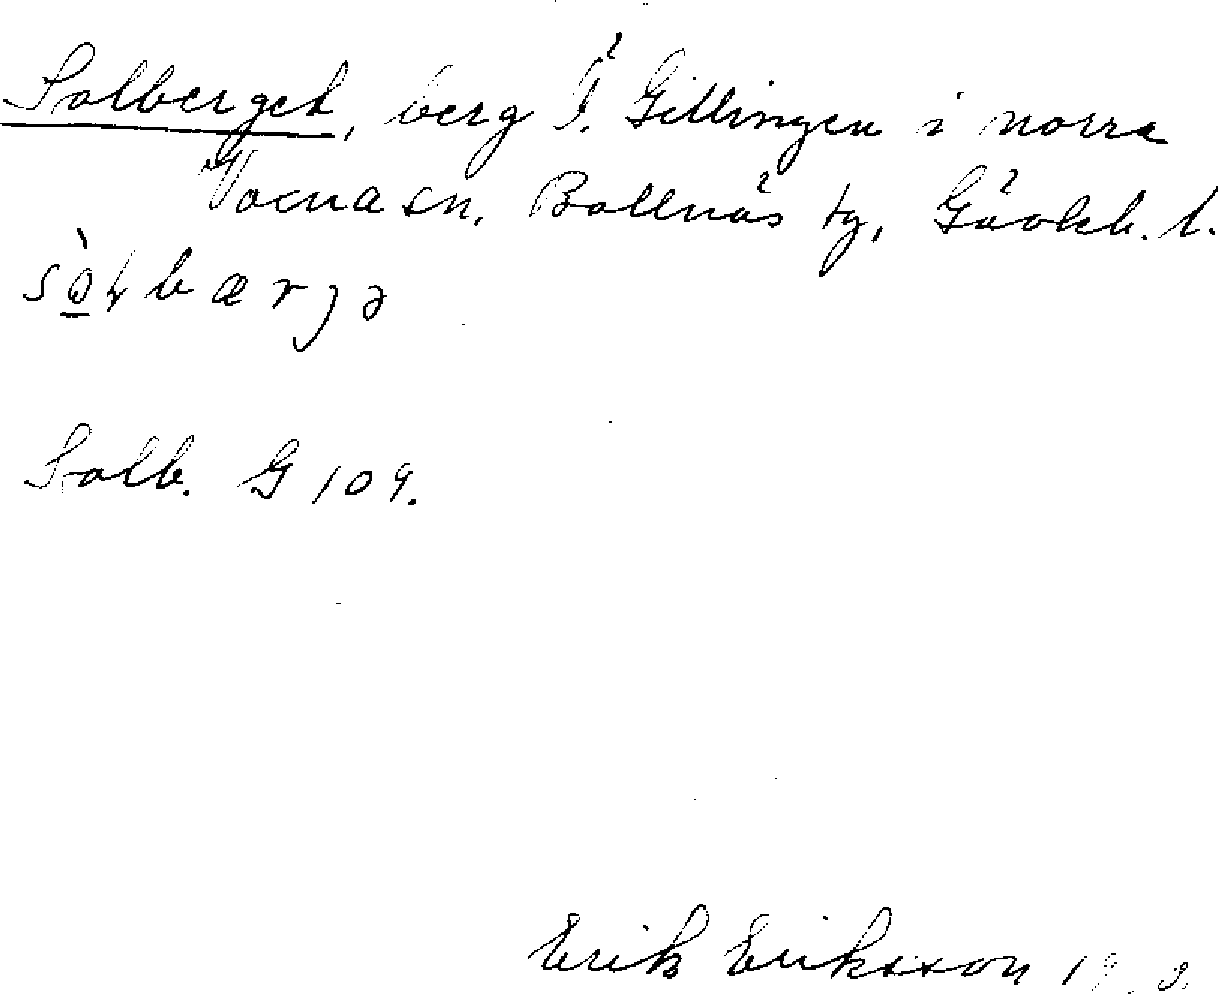 Solberget, berg Ö. Gillingen i norra
Voxna sn. Bollnäs tg, Gävleb. l.
sò̲ɽbærjə
Solb. G 109.
Erik Eriksson